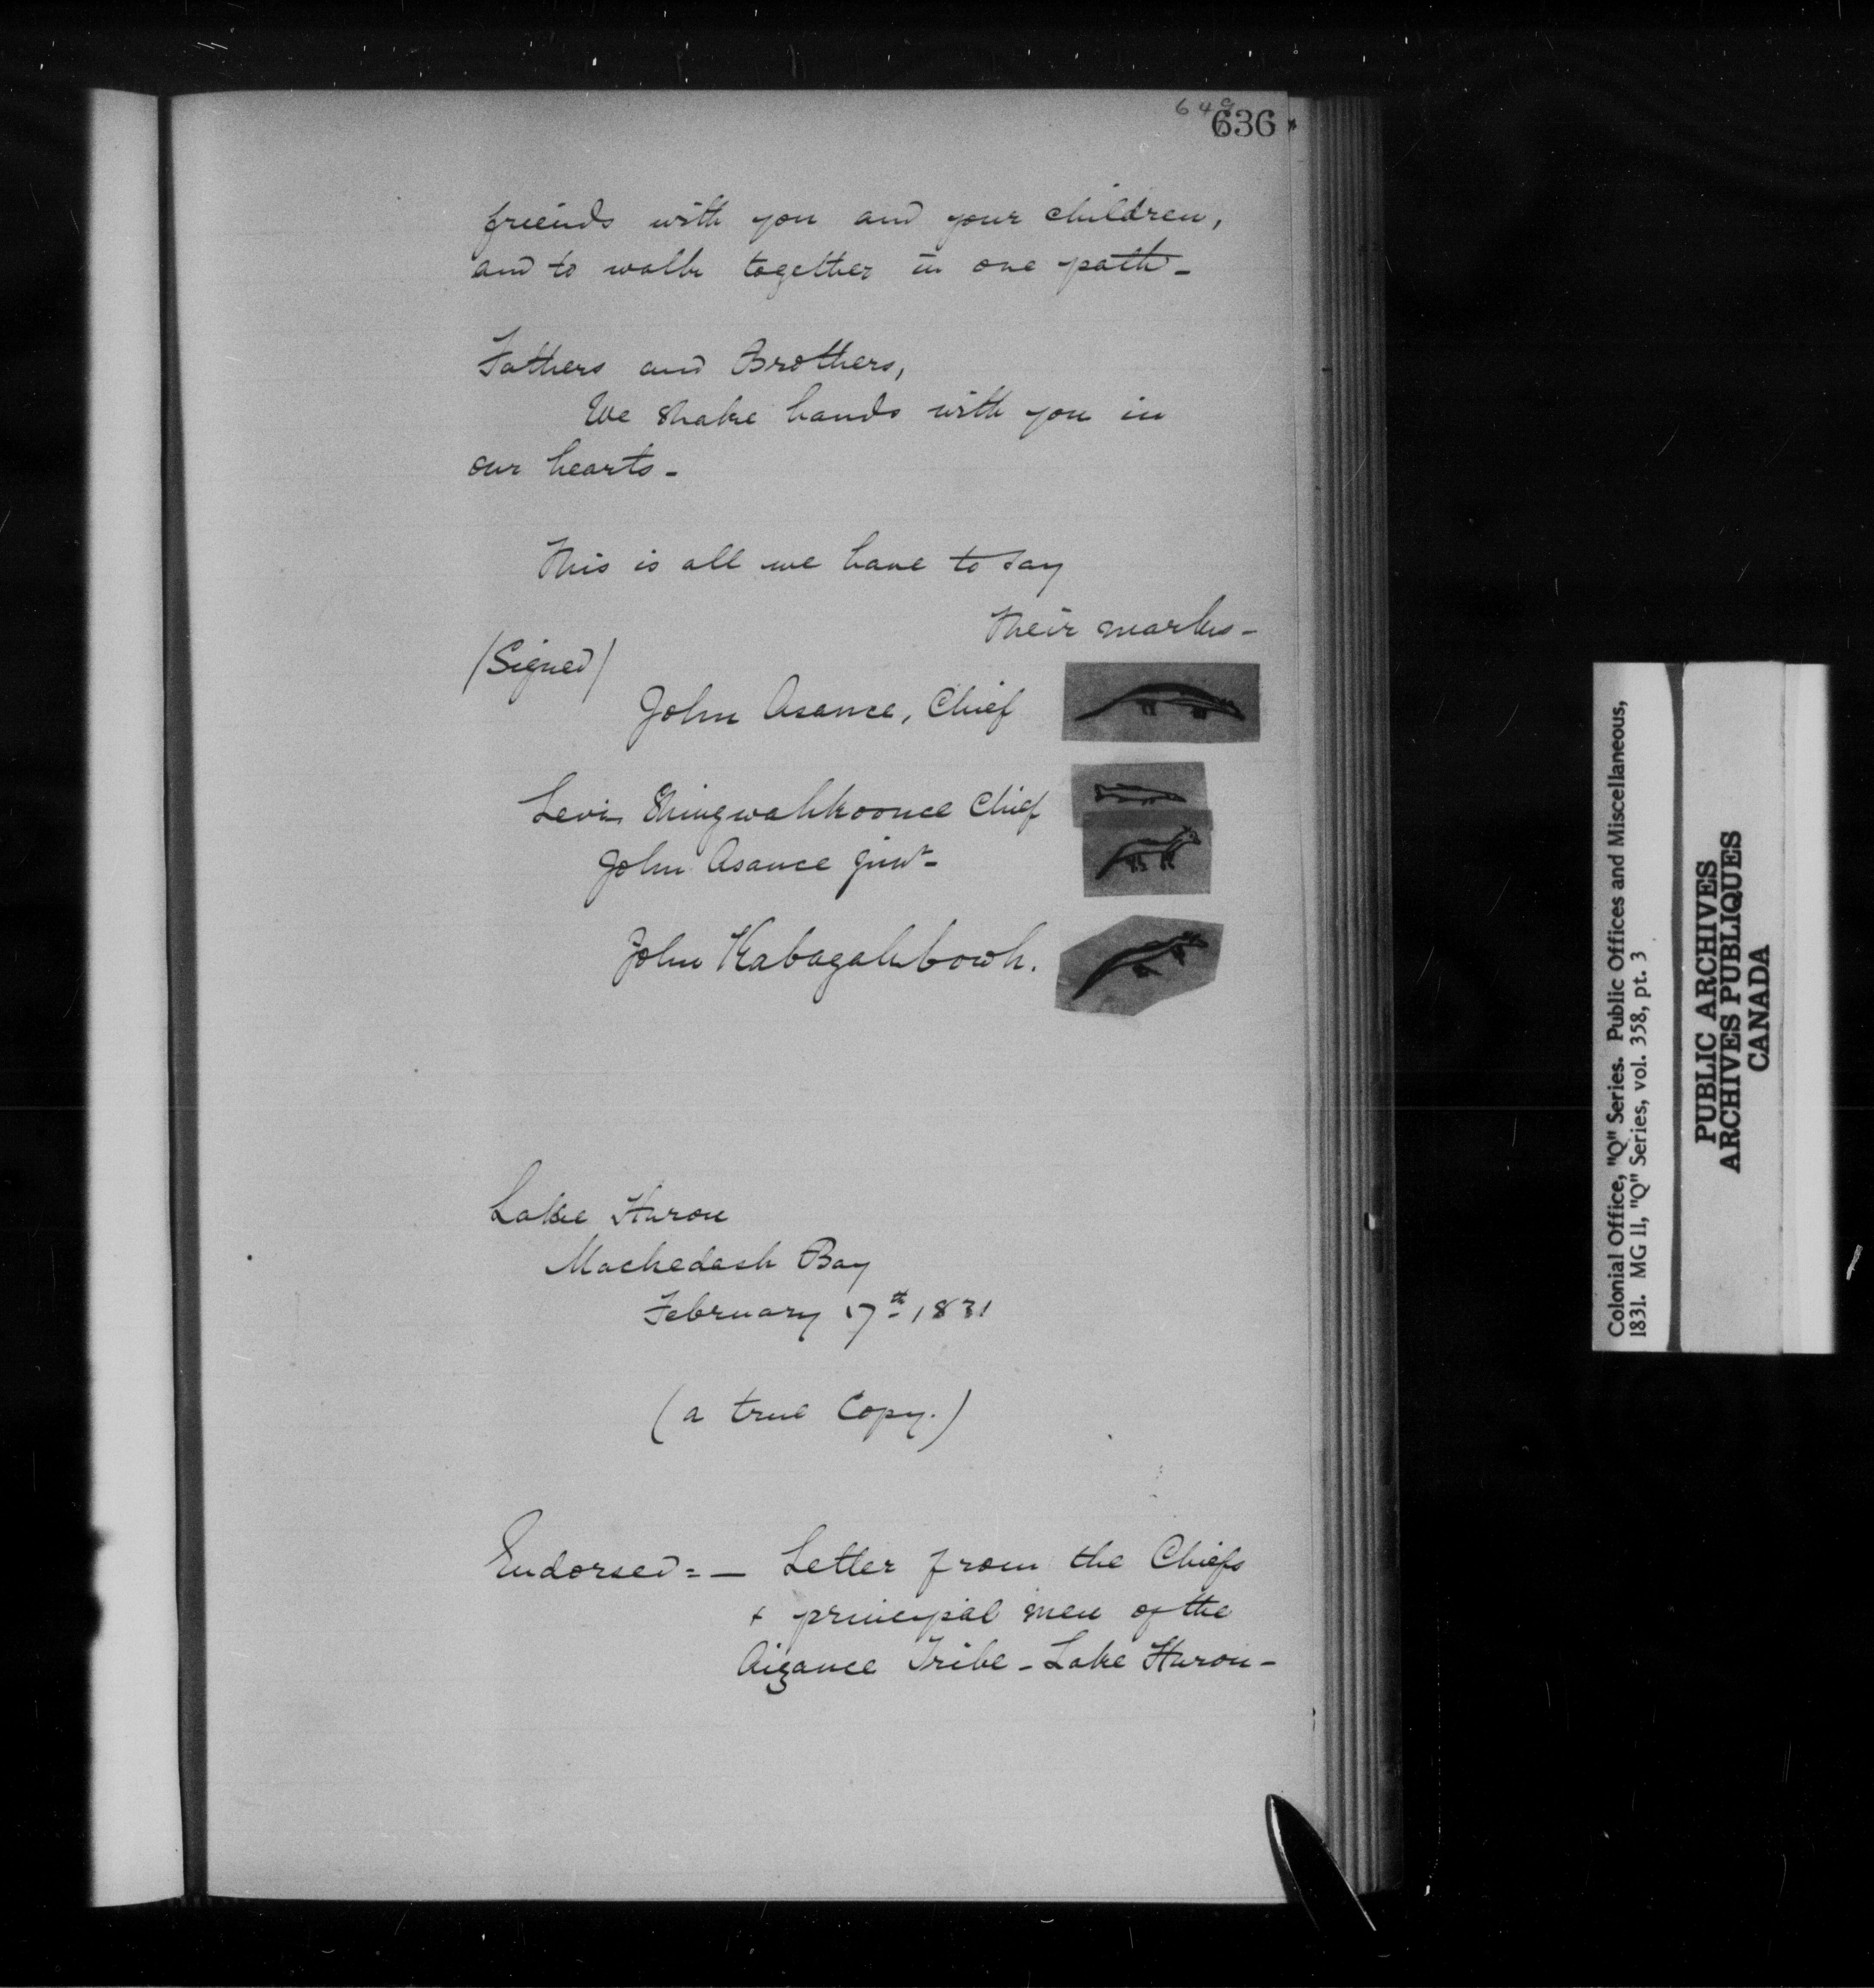 649
636
friends with you and your children,
and to walk together in one path -
Fathers and Brothers,
We shake hands with you in
our hearts -
This is all we have to say
Their marks -
(Signed)
John Asance, Chief
Levi Shingwahkoonce Chief
John Asance Junr -
John Kabagahbowh.
Lake Huron
Machedash Bay
February 17th 1831
(a true Copy.)
Endorsed = — Letter from the Chiefs
+ principal men of the
Aizance Tribe - Lake Huron -
Colonial Office, "Q" Series. Public Offices and Miscellaneous,
1831. MG 11, "Q" Series, vol. 358, pt. 3
PUBLIC ARCHIVES
ARCHIVES PUBLIQUES
CANADA